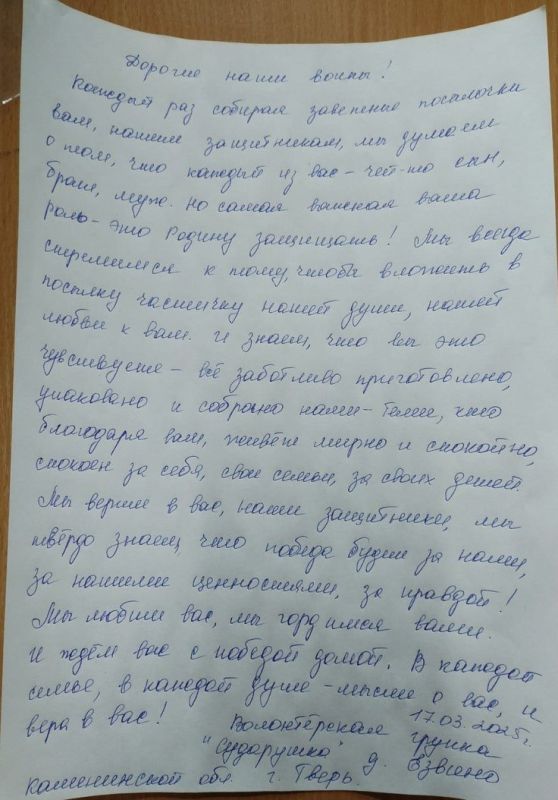 Дорогие наши воины!
Каждый раз собирая заветные посылочки
вам, нашим защитникам, мы думаем
о том, что каждый из вас – чей-то сын,
брат, муж. Но самая важная ваша
роль – это Родину защищать! Мы всегда
стремимся к тому, чтобы вложить в
посылку частичку нашей души, нашей
любви к вам. И знаем, что вы это
чувствуете – всё заботливо приготовлено,
упаковано и собрано нами – теми, кто
благодаря вам, живёт мирно и спокойно,
спокоен за себя, свои семьи, за своих детей.
Мы верим в вас, наши защитники, мы
твёрдо знаем, что победа будет за нами,
за нашими ценностями, за правдой!
Мы любим вас, мы гордимся вами.
И ждём вас с победой домой. В каждой
семье, в каждой душе – мысли о вас, и
вера в вас!
17.03.2025г.
Волонтёрская группа
"Сударушка" д.
обл. г. Тверь.